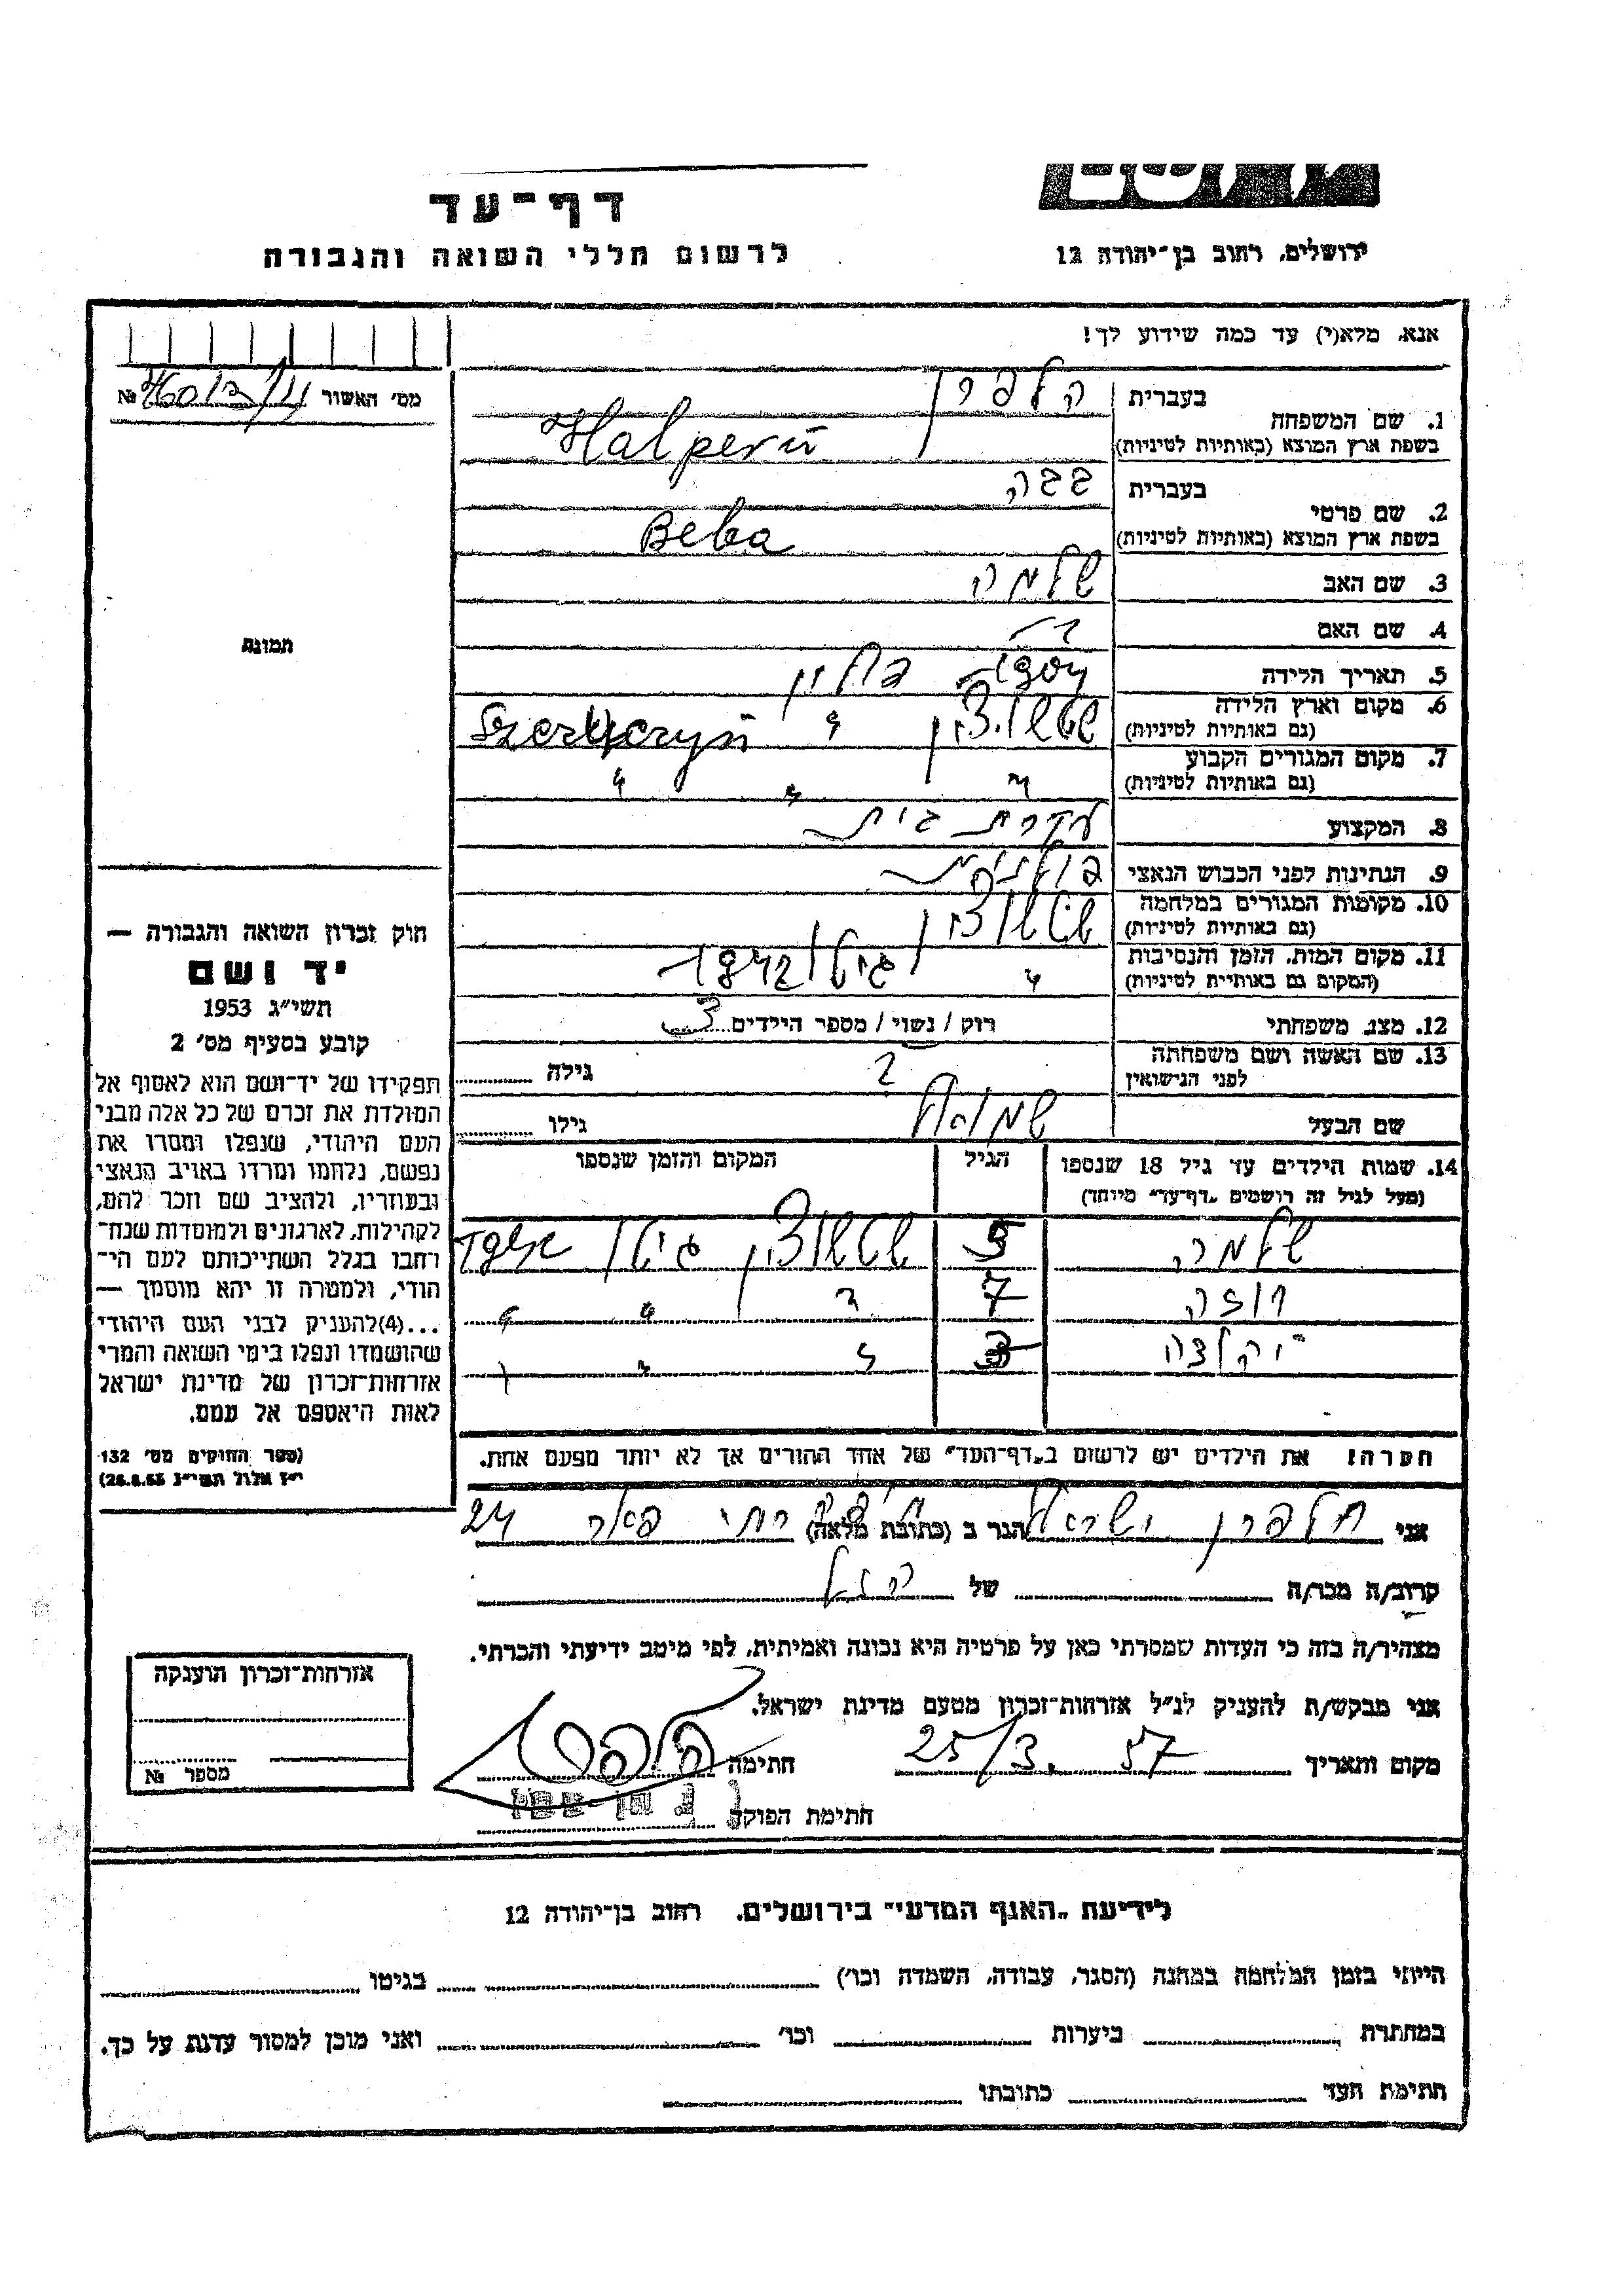 דף-עד
לרשום חללי השואה והגבורה
ירושלים, רחוב בן-יהודה 12
אנא, מלא(י) עד כמה שידוע לך!
מס' האשור №
1. שם המשפחה
בעברית הלפרין
בשפת ארץ המוצא (באותיות לטיניות) Halpern
2. שם פרטי
בעברית בבה
בשפת ארץ המוצא (באותיות לטיניות) Beba
3. שם האב שלמה
4. שם האם
5. תאריך הלידה
6. מקום וארץ הלידה
(גם באותיות לטיניות)
7. מקום המגורים הקבוע
(גם באותיות לטיניות)
8. המקצוע עקרת בית
9. הנתינות לפני הכבוש הנאצי פולנית
10. מקומות המגורים במלחמה
(גם באותיות לטיניות)
11. מקום המות, הזמן והנסיבות
(המקום גם באותיית לטיניות)
12. מצב משפחתי רוק / נשוי / מספר הילדים 3
13. שם האשה ושם משפחתה
לפני הנישואין ? גילה
שם הבעל שמואל גילו
14. שמות הילדים עד גיל 18 שנספו הגיל המקום והזמן שנספו
(מעל לגיל זה רושמים "דף-עד" מיוחד)
שלמה 5
רוזה 7
3
הערה! את הילדים יש לרשום ב"דף-העד" של אחד ההורים אך לא יותר מפעם אחת.
תמונה
חוק זכרון השואה והגבורה —
יד ושם
תשי"ג 1953
קובע בסעיף מס' 2
תפקידו של יד-ושם הוא לאסוף אל
המולדת את זכרם של כל אלה מבני
העם היהודי, שנפלו ומסרו את
נפשם, נלחמו ומרדו באויב הנאצי
ובעוזריו, ולהציב שם וזכר להם,
לקהילות, לארגונים ולמוסדות שנח-
רחבו בגלל השתייכותם לעם הי-
הודי, ולמטרה זו יהא מוסמך —
...(4)להעניק לבני העם היהודי
שהושמדו ונפלו בימי השואה והמרי
אזרחות-זכרון של מדינת ישראל
לאות היאספם אל עמם.
(ספר החוקים מס' 132
י"ז אלול תשי"ג 28.8.53)
אני הלפרן ישראל הגר ב (כתובת מלאה) 24
קרוב/ה מכר/ה של
מצהיר/ה בזה כי העדות שמסרתי כאן על פרטיה היא נכונה ואמיתית, לפי מיטב ידיעתי והכרתי.
אני מבקש/ת להעניק לנ"ל אזרחות-זכרון מטעם מדינת ישראל.
מקום ותאריך 25/3. 57 חתימה
חתימת הפוקד
אזרחות-זכרון הוענקה
מספר №
לידיעת "האגף המדעי" בירושלים, רחוב בן-יהודה 12
הייתי בזמן המלחמה במחנה (הסגר, עבודה, השמדה וכו') בגיטו
במחתרת ביערות וכו' ואני מוכן למסור עדות על כך.
חתימת העד כתובתו